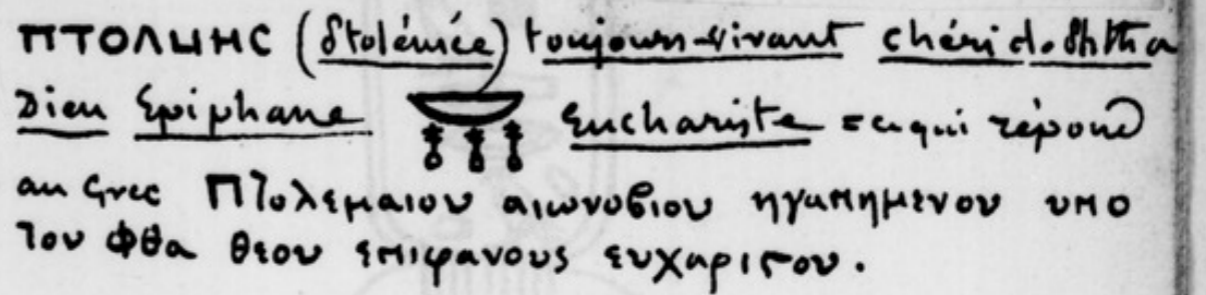 ΠΤΟΛΜΗC (Ptolémée) toujours-vivant chéri de Phtha
Dieu Epiphane Euchariste = ce qui répond
au Grec Πτολεμαιου αιωνοβιου ηγαπημενου υπο
του Φθα θεου επιφανους ευχαριϛου.